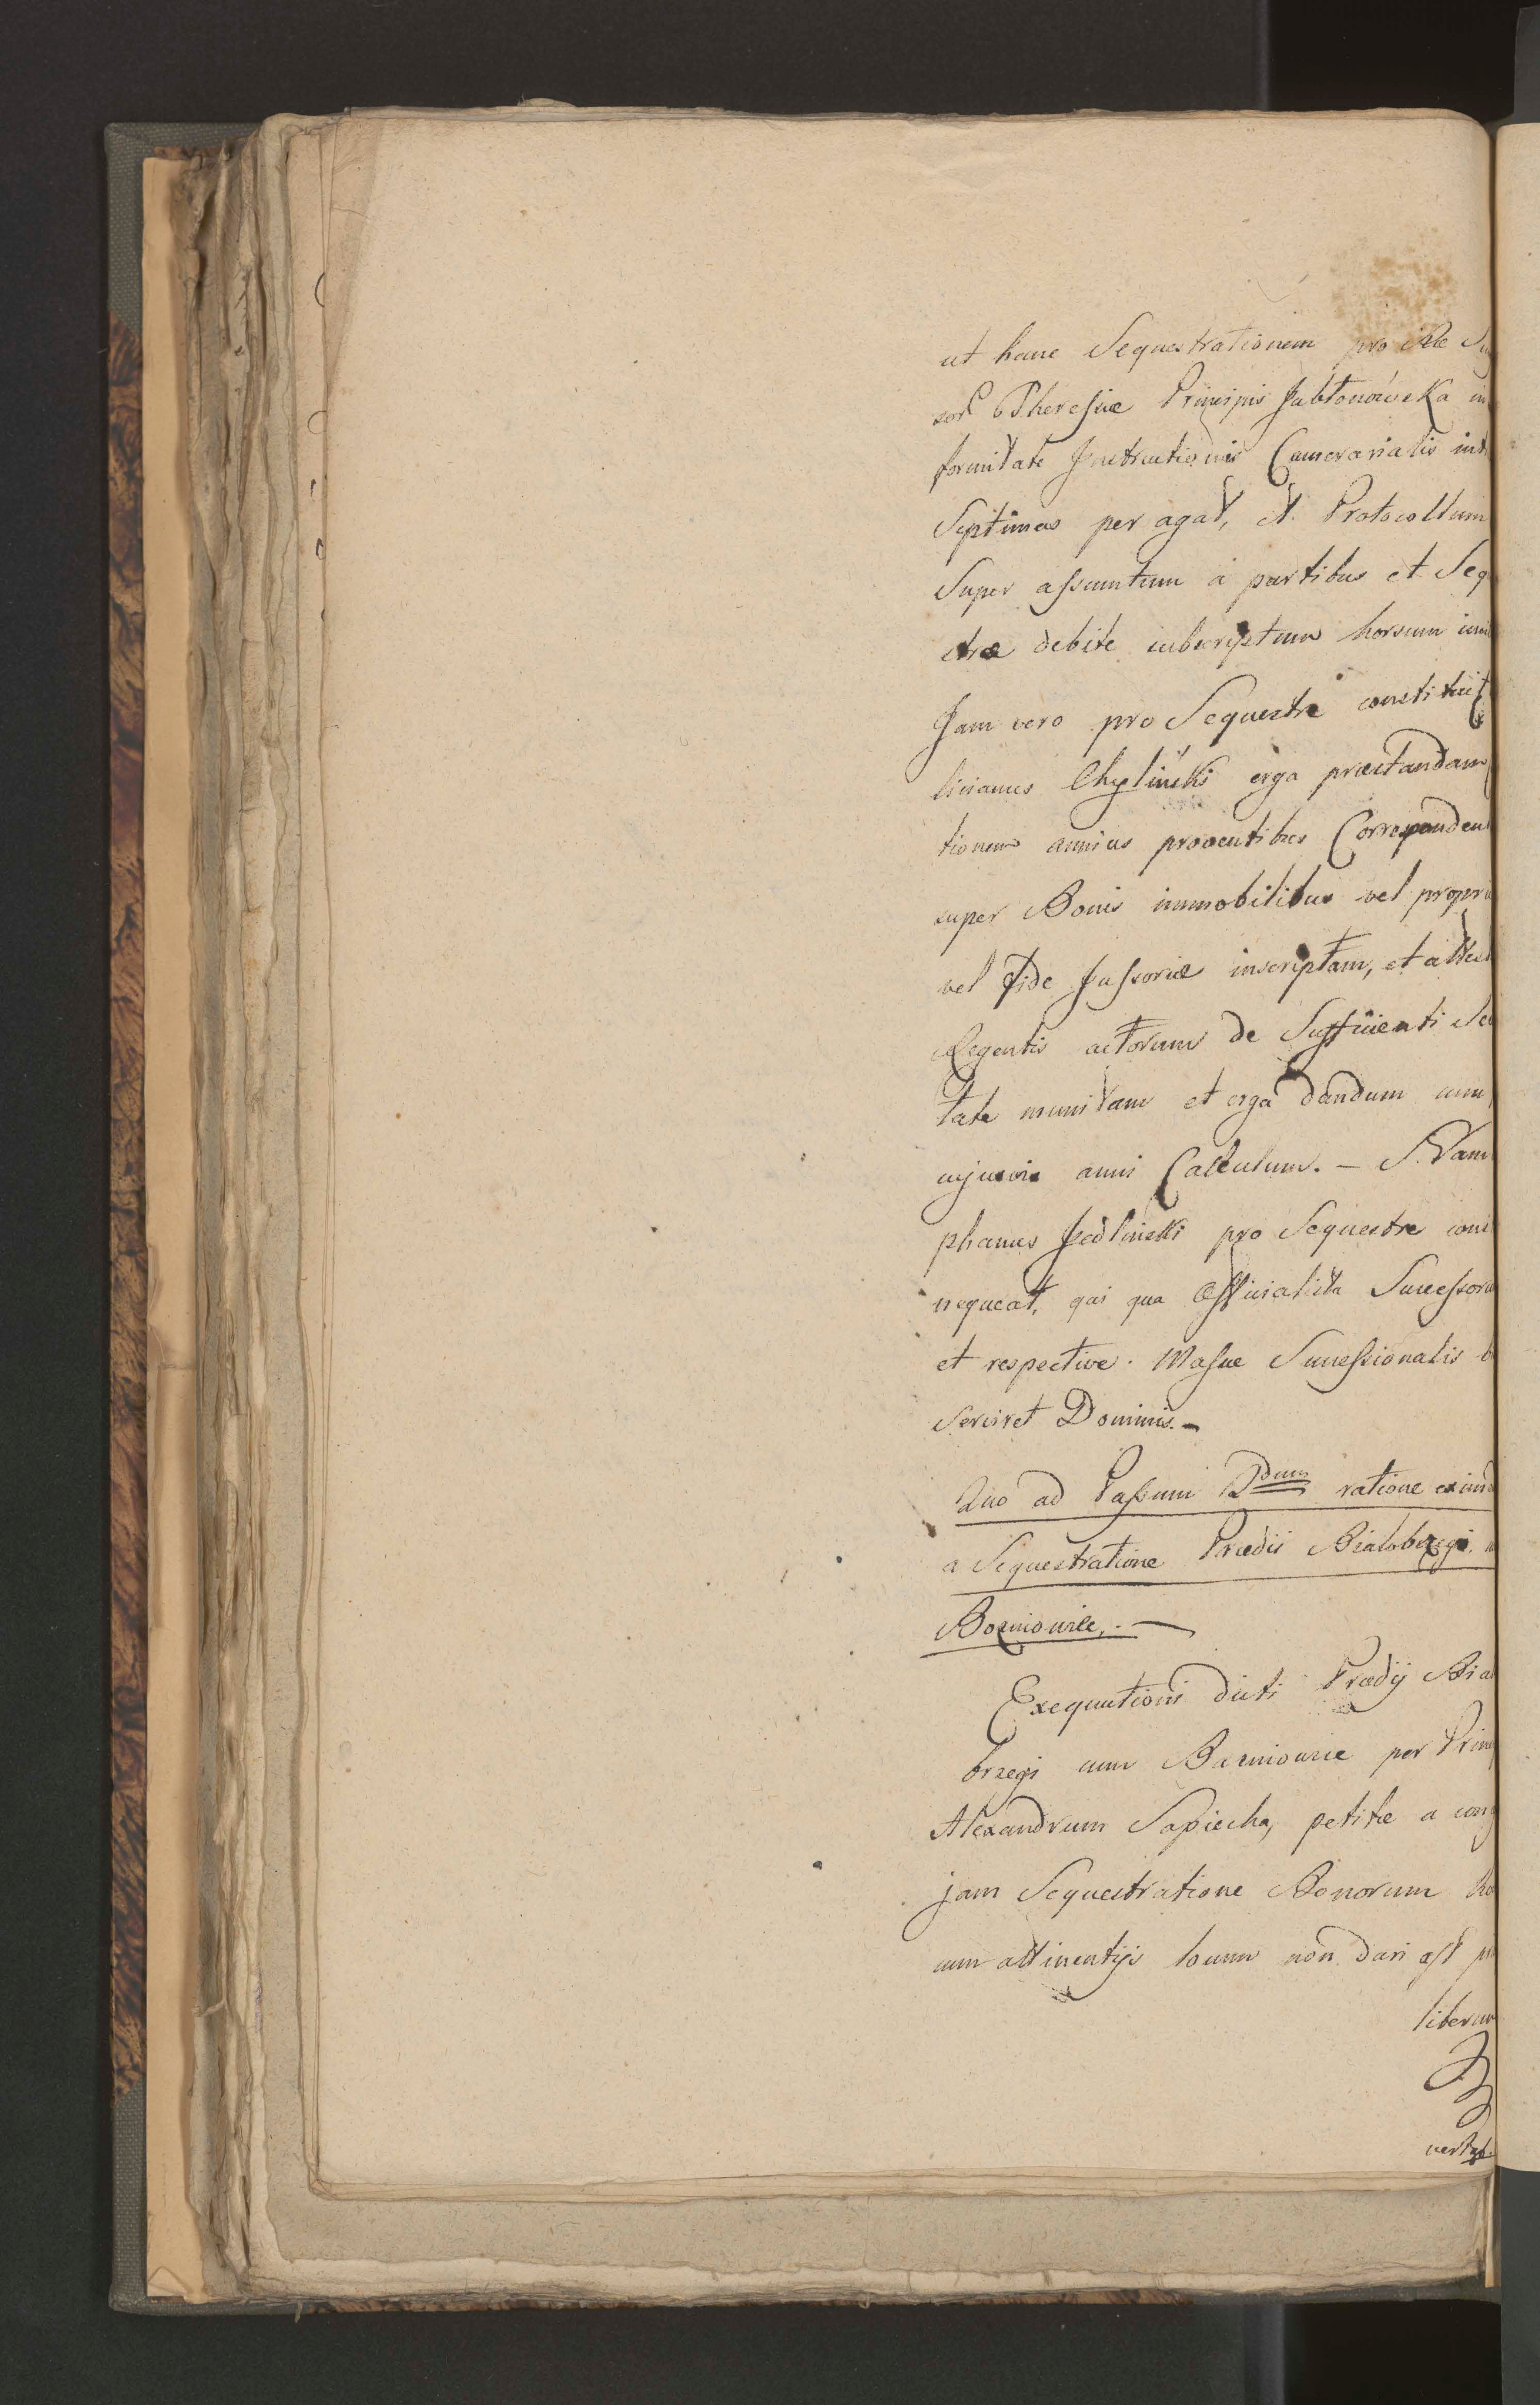 ut hanc Sequestrationem pro Re
Theresiæ Principis Jabłonówska in
formitate Instructionis Camerarialis int
Septimas per agat, et Protocollum
Super assumtum a partibus et Seq
stræ debite subscriptum horsum
Jam vero pro Sequestre constituit
licianus Chyliński erga præstandam
tionem annius proventibus Correspondeu
super Bonis immobilibus vel propri
vel fide Jussoriæ inscriptam, et attes
Regentis actorum de Sufficienti Se
tate munitam et erga dandum cum
cujusvis anni Calculum. —
phanus Jedlinski pro Sequestre cons
nequeat, qui qua Officialista Successoru
et respective Massæ Successionalis b
serviret Dominis. —
Quo ad Passum 2dum ratione eximd
a Sequestratione Prædii Białobrzegi
Boznionice. —
Exequutioni dicti Prædij Bia
brzegi cum per Prin
Alexandrum Sapiecha, petitæ a
jam Sequestratione Bonorum
cum attinentijs locum non dari ast
liberum
vertat.